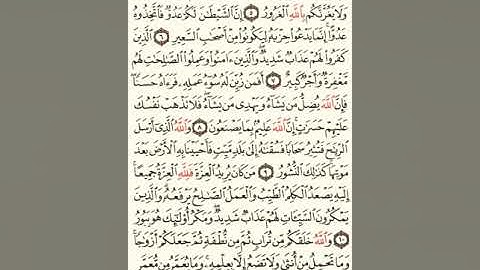 وَلَا يَغُرَّنَّكُم بِاللَّهِ الْغَرُورُ ٥ إِنَّ الشَّيْطَٰنَ لَكُمْ عَدُوٌّ فَاتَّخِذُوهُ
عَدُوًّا ۚ إِنَّمَا يَدْعُوا۟ حِزْبَهُۥ لِيَكُونُوا۟ مِنْ أَصْحَٰبِ السَّعِيرِ ٦ الَّذِينَ
كَفَرُوا۟ لَهُمْ عَذَابٌ شَدِيدٌ ۖ وَالَّذِينَ ءَامَنُوا۟ وَعَمِلُوا۟ الصَّٰلِحَٰتِ لَهُم
مَّغْفِرَةٌ وَأَجْرٌ كَبِيرٌ ٧ أَفَمَن زُيِّنَ لَهُۥ سُوٓءُ عَمَلِهِۦ فَرَءَاهُ حَسَنًا ۖ
فَإِنَّ اللَّهَ يُضِلُّ مَن يَشَآءُ وَيَهْدِى مَن يَشَآءُ ۖ فَلَا تَذْهَبْ نَفْسُكَ
عَلَيْهِمْ حَسَرَٰتٍ ۚ إِنَّ اللَّهَ عَلِيمٌۢ بِمَا يَصْنَعُونَ ٨ وَاللَّهُ الَّذِىٓ أَرْسَلَ
الرِّيَٰحَ فَتُثِيرُ سَحَابًا فَسُقْنَٰهُ إِلَىٰ بَلَدٍ مَّيِّتٍ فَأَحْيَيْنَا بِهِ الْأَرْضَ بَعْدَ
مَوْتِهَا ۚ كَذَٰلِكَ النُّشُورُ ٩ مَن كَانَ يُرِيدُ الْعِزَّةَ فَلِلَّهِ الْعِزَّةُ جَمِيعًا ۚ
إِلَيْهِ يَصْعَدُ الْكَلِمُ الطَّيِّبُ وَالْعَمَلُ الصَّٰلِحُ يَرْفَعُهُۥ ۚ وَالَّذِينَ
يَمْكُرُونَ السَّيِّـَٔاتِ لَهُمْ عَذَابٌ شَدِيدٌ ۖ وَمَكْرُ أُو۟لَٰٓئِكَ هُوَ يَبُورُ
١٠ وَاللَّهُ خَلَقَكُم مِّن تُرَابٍ ثُمَّ مِن نُّطْفَةٍ ثُمَّ جَعَلَكُمْ أَزْوَٰجًا ۚ
وَمَا تَحْمِلُ مِنْ أُنثَىٰ وَلَا تَضَعُ إِلَّا بِعِلْمِهِۦ ۚ وَمَا يُعَمَّرُ مِن مُّعَمَّرٍ